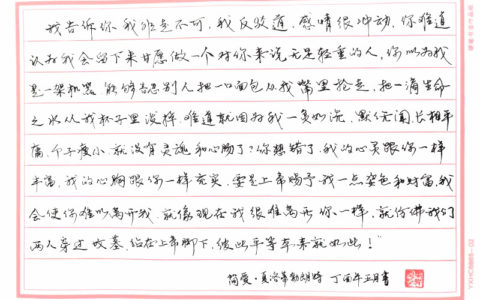 我告诉你我非走不可,我反驳道,感情很冲动,你难道
认为我会留下来甘愿做一个对你来说无足轻重的人,你以为我
是一架机器 能够容忍别人把一口面包从我嘴里抢走,把一滴生命
之水从我杯子里泼掉 难道就因为我一贫如洗、默默无闻、长相平
庸、个子瘦小 就没有灵魂和心肠了?你想错了,我的心灵跟你一样
丰富,我的心胸跟你一样充实,要是上帝赐予我一点姿色和财富,我
会使你难以离开我,就像现在我很难离开你一样,就仿佛我们
两人穿过坟墓 站在上帝脚下,彼此平等 本来就如此!”
简爱·夏洛蒂勃朗特 丁酉年五月书